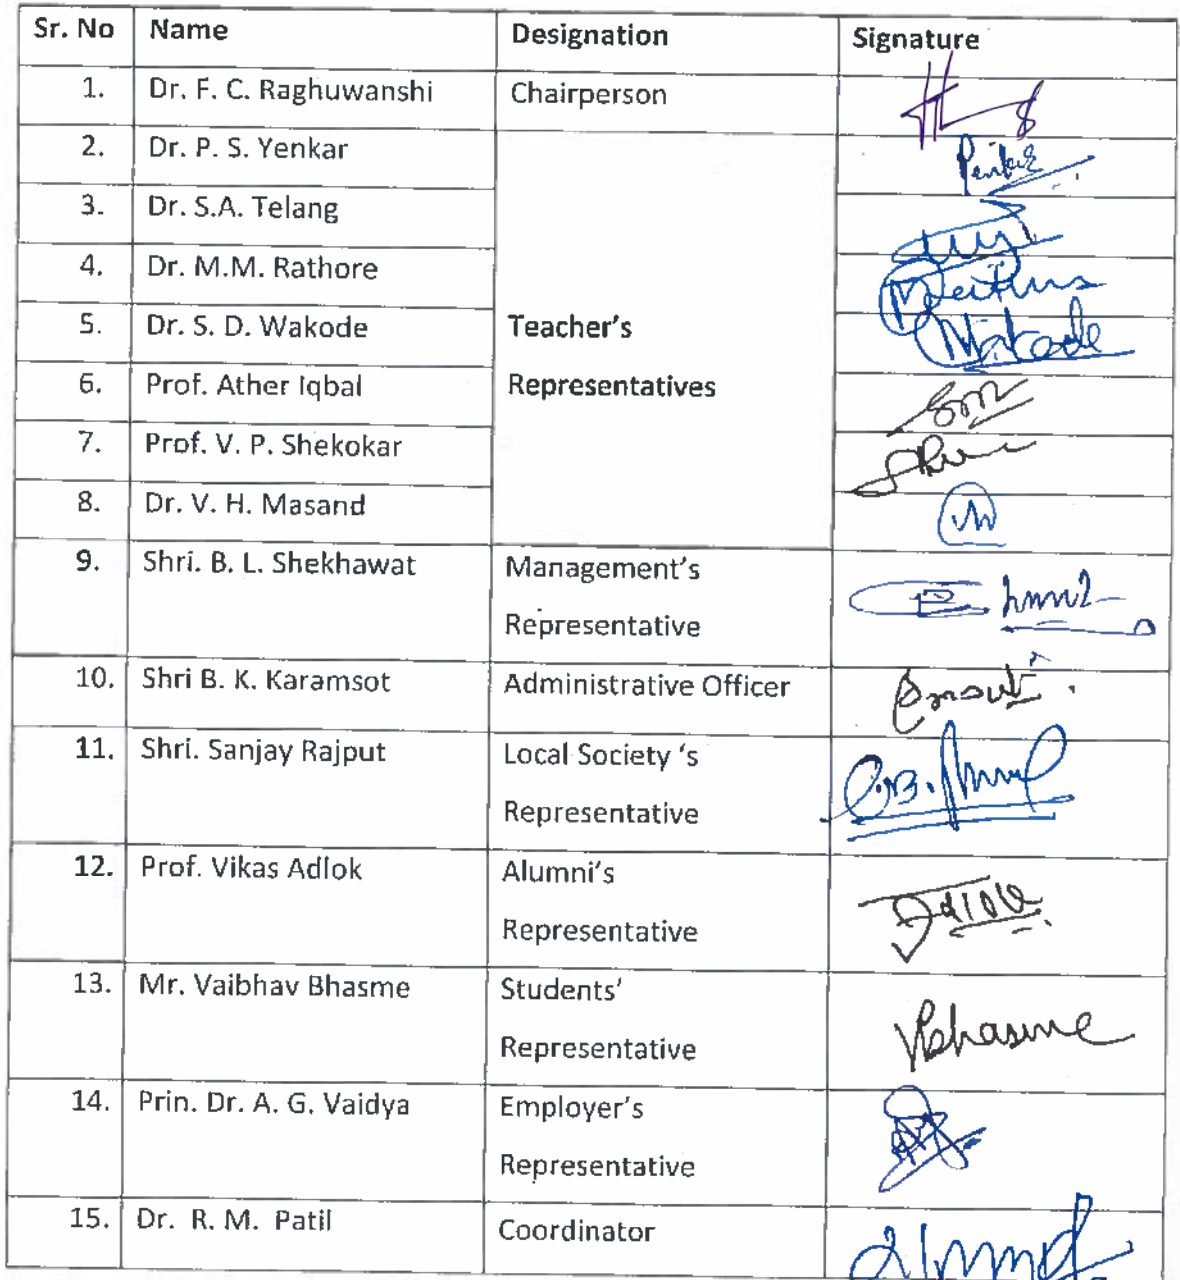 Sr. No Name Designation Signature
1. Dr. F. C. Raghuwanshi Chairperson
2. Dr. P. S. Yenkar
3. Dr. S.A. Telang
4. Dr. M.M. Rathore
5. Dr. S. D. Wakode Teacher's
Wakode
6. Prof. Ather Iqbal Representatives
7. Prof. V. P. Shekokar
8. Dr. V. H. Masand
9. Shri. B. L. Shekhawat Management's
Representative
10. Shri B. K. Karamsot Administrative Officer
11. Shri. Sanjay Rajput Local Society 's
Representative
12. Prof. Vikas Adlok Alumni's
Representative
13. Mr. Vaibhav Bhasme Students'
Representative Vbhasme
14. Prin. Dr. A. G. Vaidya Employer's
Representative
15. Dr. R. M. Patil Coordinator